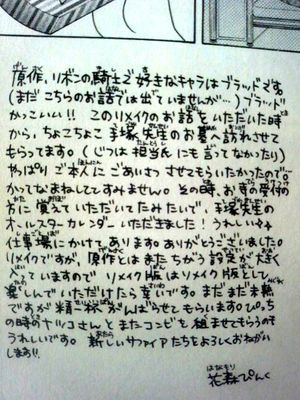 原作、リボンの騎士で好きなキャラはブラッドです。
(まだこちらのお話では出ていませんが…)ブラッド
かっこいい!! このリメイクのお話をいただいた時
から、ちょこちょこ手塚先生のお墓へ訪れさせて
もらってます。(じつは担当氏にも言ってなかったり)
やっぱりご本人にごあいさつさせてもらいたかったので…
かってなまねしてすみません。その時、お寺の受付の
方に覚えていただいてたみたいで、手塚先生の
オールスターカレンダーいただきました! うれしい
仕事場にかけてあります。ありがとうございました。
リメイクですが、原作とはまたちがう設定が大きく
入っていますのでリメイク版はリメイク版として
楽しんでいただけたら幸いです。まだまだ未熟
ですが精一杯がんばらせてもらいます。ぴっち
の時のナツコさんとまたコンビを組ませてもらうのも
うれしいです。新しいサファイアたちをよろしくおねがい
します!!
はなもり
花森ぴんく